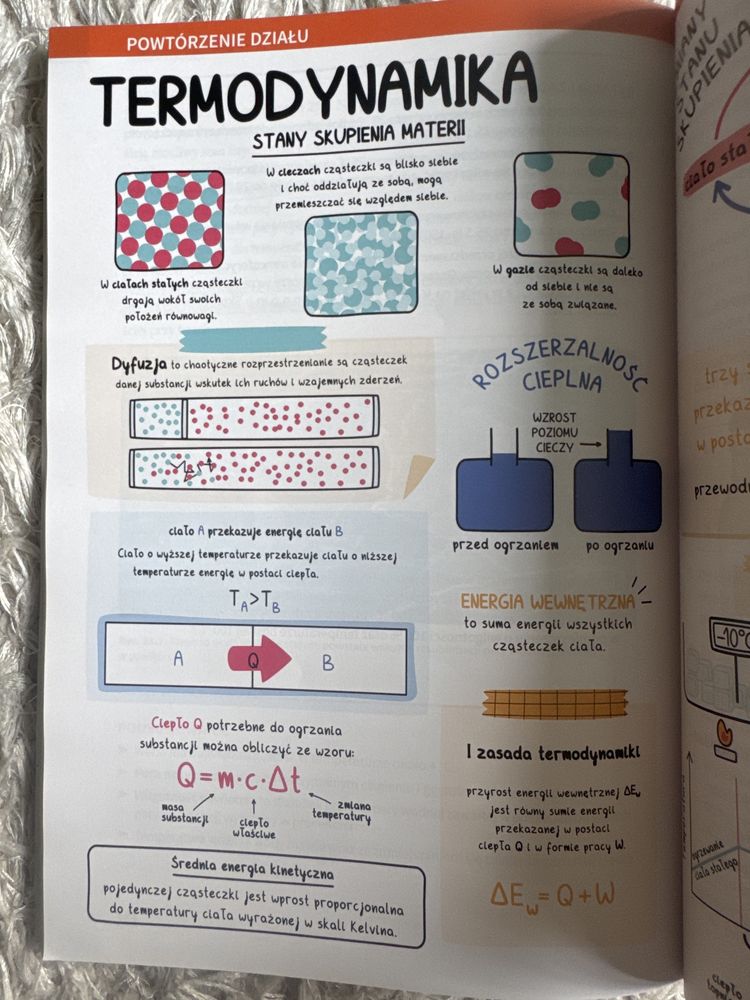 POWTÓRZENIE DZIAŁU
TERMODYNAMIKA
STANY SKUPIENIA MATERII
W ciałach stałych cząsteczki
drgają wokół swoich
położeń równowagi.
W cieczach cząsteczki są blisko siebie
i choć oddziałują ze sobą, mogą
przemieszczać się względem siebie.
W gazie cząsteczki są daleko
od siebie i nie są
ze sobą związane.
Dyfuzja to chaotyczne rozprzestrzenianie są cząsteczek
danej substancji wskutek ich ruchów i wzajemnych zderzeń.
ROZSZERZALNOŚĆ
CIEPLNA
WZROST
POZIOMU
CIECZY
przed ogrzaniem
po ogrzaniu
ciało A przekazuje energię ciału B
Ciało o wyższej temperaturze przekazuje ciału o niższej
temperaturze energię w postaci ciepła.
T_A>T_B
A
Q
B
ENERGIA WEWNĘTRZNA
to suma energii wszystkich
cząsteczek ciała.
Ciepło Q potrzebne do ogrzania
substancji można obliczyć ze wzoru:
Q=m·c·Δt
masa
substancji
ciepło
właściwe
zmiana
temperatury
Średnia energia kinetyczna
pojedynczej cząsteczki jest wprost proporcjonalna
do temperatury ciała wyrażonej w skali Kelvina.
I zasada termodynamiki
przyrost energii wewnętrznej ΔE_w
jest równy sumie energii
przekazanej w postaci
ciepła Q i w formie pracy W.
ΔE_w=Q+W
STANU
SKUPIENIA
ciało sta
trzy
przekaz
w posta
przewod
-10°C
ogrzewanie
ciała stałego